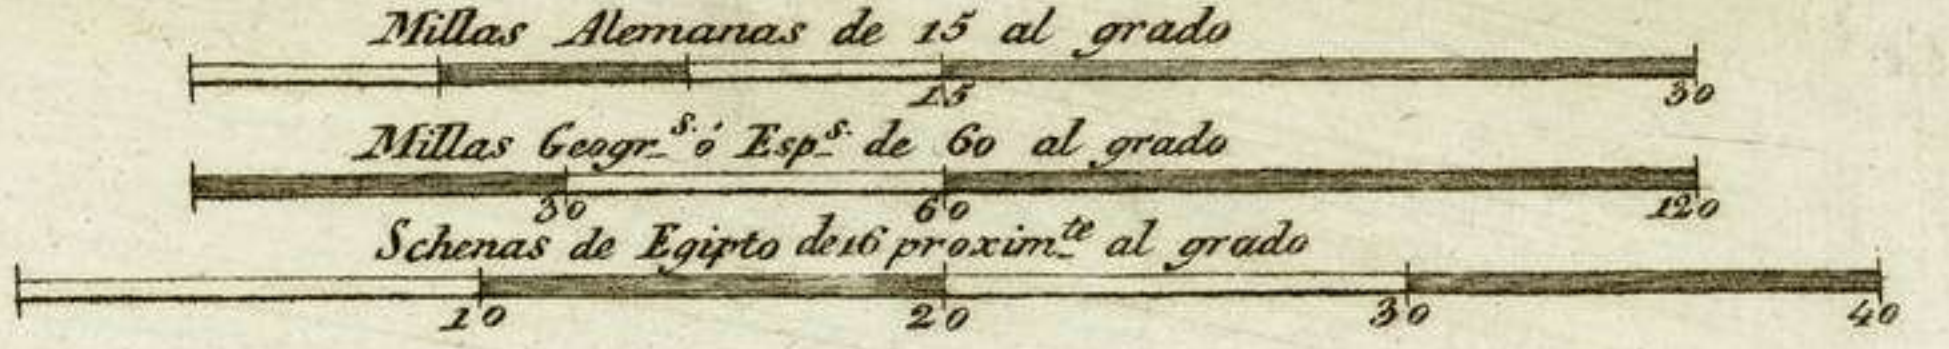 Millas Alemanas de 15 al grado
15 30
Millas Geogr.s ó Esp.s de 60 al grado
30 60 120
Schenas de Egipto de 16 proxim.te al grado
10 20 30 40